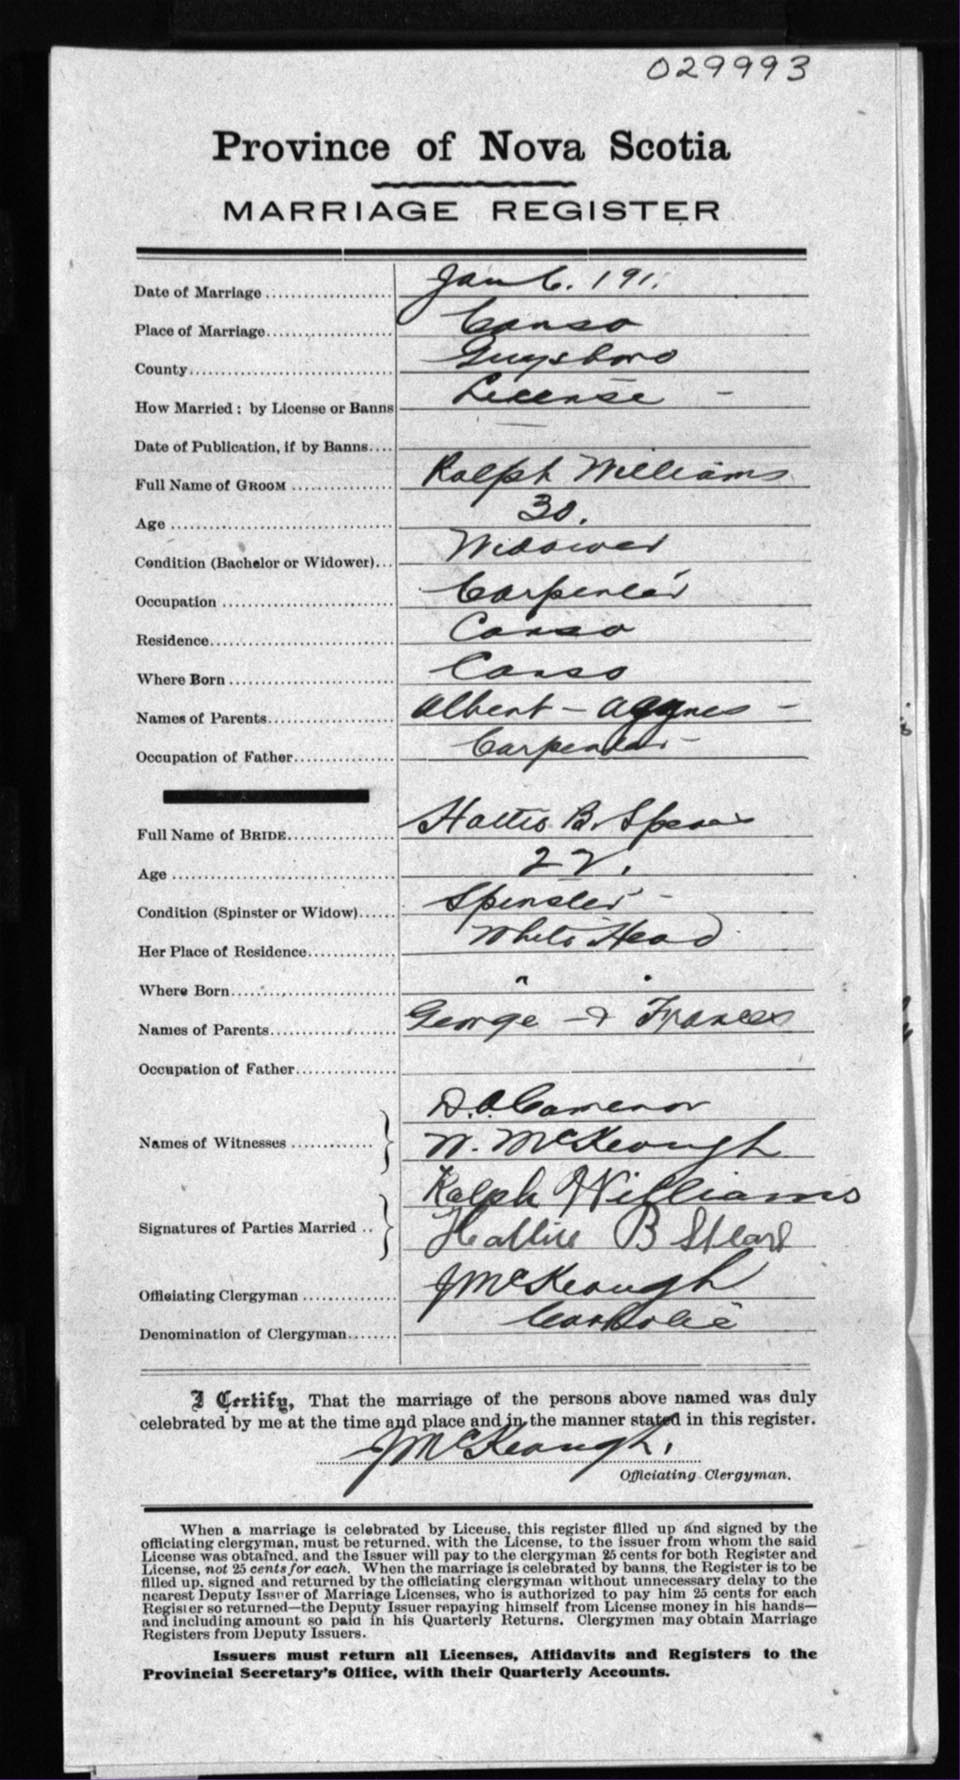 029993
Province of Nova Scotia
MARRIAGE REGISTER
Date of Marriage Jan 6. 191.
Place of Marriage Canso
County Guysboro
How Married: by License or Banns License -
Date of Publication, if by Banns
Full Name of GROOM Ralph Williams
Age 30.
Condition (Bachelor or Widower) Widower
Occupation Carpenter
Residence Canso
Where Born Canso
Names of Parents Albert - Agnes -
Occupation of Father Carpenter -
Full Name of BRIDE Hattie B. Spears
Age 22.
Condition (Spinster or Widow) Spinster -
Her Place of Residence White Head
Where Born " "
Names of Parents George & Frances
Occupation of Father
D.A. Cameron
Names of Witnesses W. McKeough
Ralph Williams
Signatures of Parties Married Hattie B
Officiating Clergyman J McKeough
Denomination of Clergyman Catholic
I Certify, That the marriage of the persons above named was duly
celebrated by me at the time and place and in the manner stated in this register.
J McKeough.
Officiating Clergyman.
When a marriage is celebrated by License, this register filled up and signed by the
officiating clergyman, must be returned, with the License, to the issuer from whom the said
License was obtained, and the Issuer will pay to the clergyman 25 cents for both Register and
License, not 25 cents for each. When the marriage is celebrated by banns, the Register is to be
filled up, signed and returned by the officiating clergyman without unnecessary delay to the
nearest Deputy Issuer of Marriage Licenses, who is authorized to pay him 25 cents for each
Register so returned—the Deputy Issuer repaying himself from License money in his hands—
and including amount so paid in his Quarterly Returns. Clergymen may obtain Marriage
Registers from Deputy Issuers.
Issuers must return all Licenses, Affidavits and Registers to the
Provincial Secretary's Office, with their Quarterly Accounts.